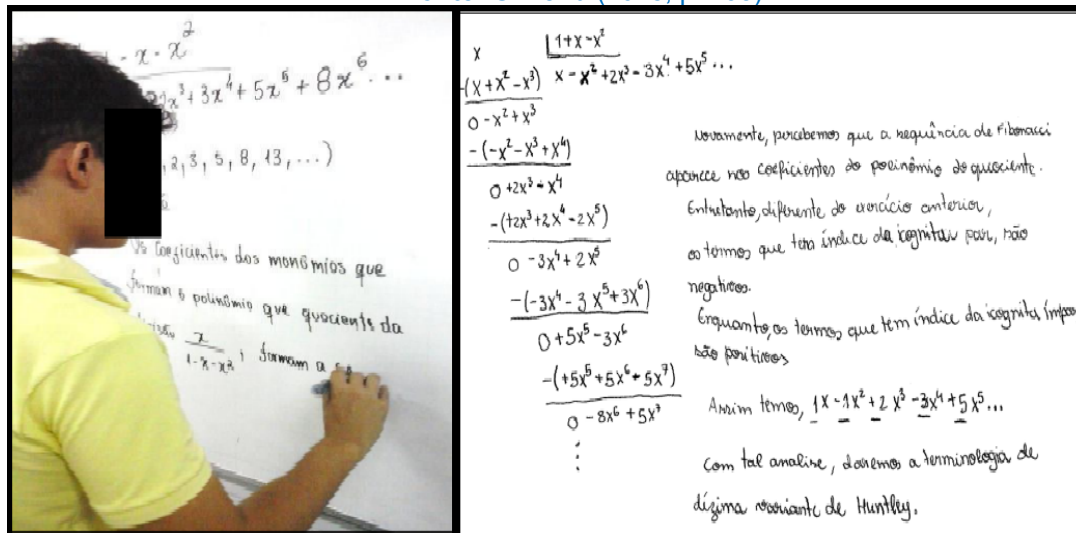 - x - x²
2x³ + 3x⁴ + 5x⁵ + 8x⁶ ...
, 2, 3, 5, 8, 13, ...)
Os coeficientes dos monômios que
formam o polinômio que quociente da
x / 1-x-x² , formam a
x |1+x-x²
-(x+x²-x³) x - x² + 2x³ - 3x⁴ + 5x⁵ ...
0 - x² + x³
-(-x² - x³ + x⁴)
0 + 2x³ - x⁴
-(+2x³ + 2x⁴ - 2x⁵)
0 - 3x⁴ + 2x⁵
-(-3x⁴ - 3x⁵ + 3x⁶)
0 + 5x⁵ - 3x⁶
-(+5x⁵ + 5x⁶ - 5x⁷)
0 - 8x⁶ + 5x⁷
⋮
Novamente, percebemos que a sequência de Fibonacci
aparece nos coeficientes do polinômio do quociente.
Entretanto, diferente do exercício anterior,
os termos que tem índice da icognita par, são
negativos.
Enquanto, os termos que tem índice da icognita ímpar
são positivos
Assim temos, 1x - 1x² + 2x³ - 3x⁴ + 5x⁵ ...
Com tal analise, daremos a terminologia de
dízima variante de Huntley.